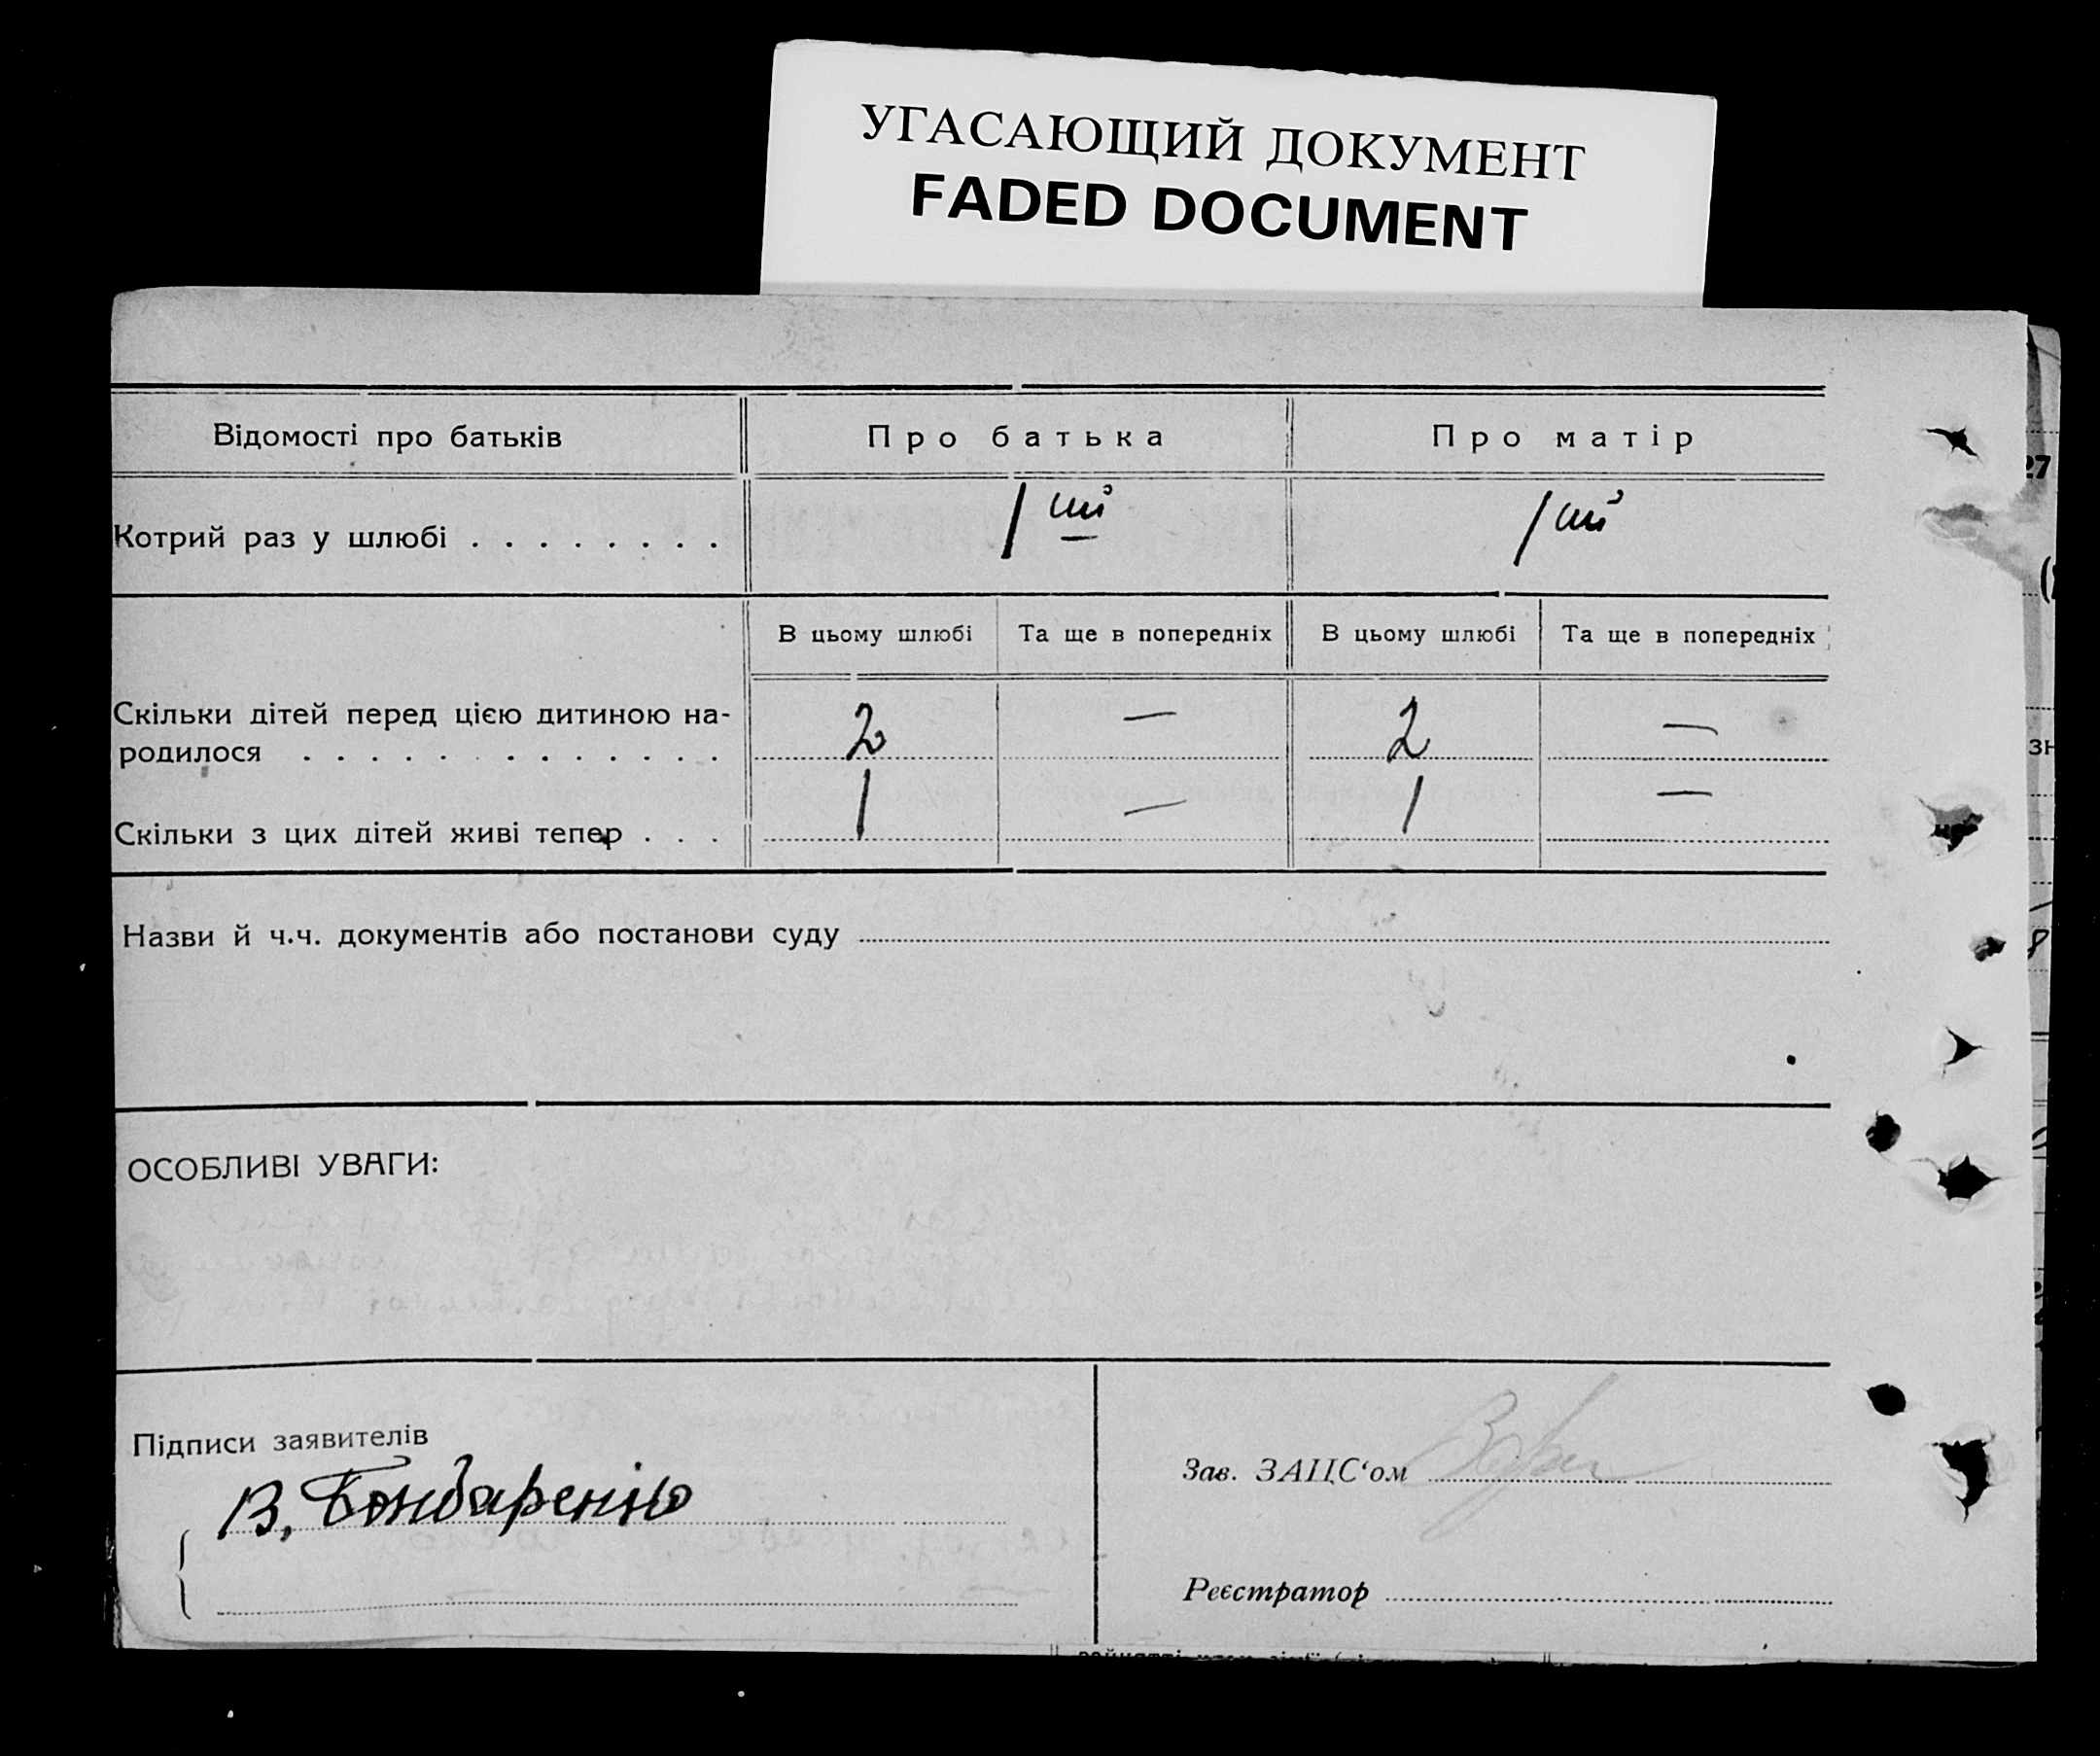 УГАСАЮЩИЙ ДОКУМЕНТ
FADED DOCUMENT
Відомості про батьків Про батька Про матір
Котрий раз у шлюбі . . . . . . . . 1ший 1ший
В цьому шлюбі Та ще в попередніх В цьому шлюбі Та ще в попередніх
Скільки дітей перед цією дитиною на-
родилося . . . . . . . . . . . . . 2 — 2 —
Скільки з цих дітей живі тепер . . . 1 — 1 —
Назви й ч.ч. документів або постанови суду
ОСОБЛИВІ УВАГИ:
Підписи заявителів
В. Бондаренко
Зав. ЗАЦС‘ом
Реєстратор
27